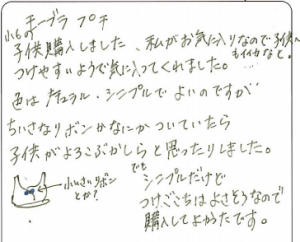 モーブラ プチ
小6の
子供購入しました、私がお気に入りなので子供へ
もイイカなと。
つけやすいようで気に入ってくれました。
色はナチュラル・シンプルでよいのですが
ちいさなリボンかなにかついていたら
子供がよろこぶかしらと思ったりしました。
小さいリボン
とか?
でも
シンプルだけど
つけごこちはよさそうなので
購入してよかったです。